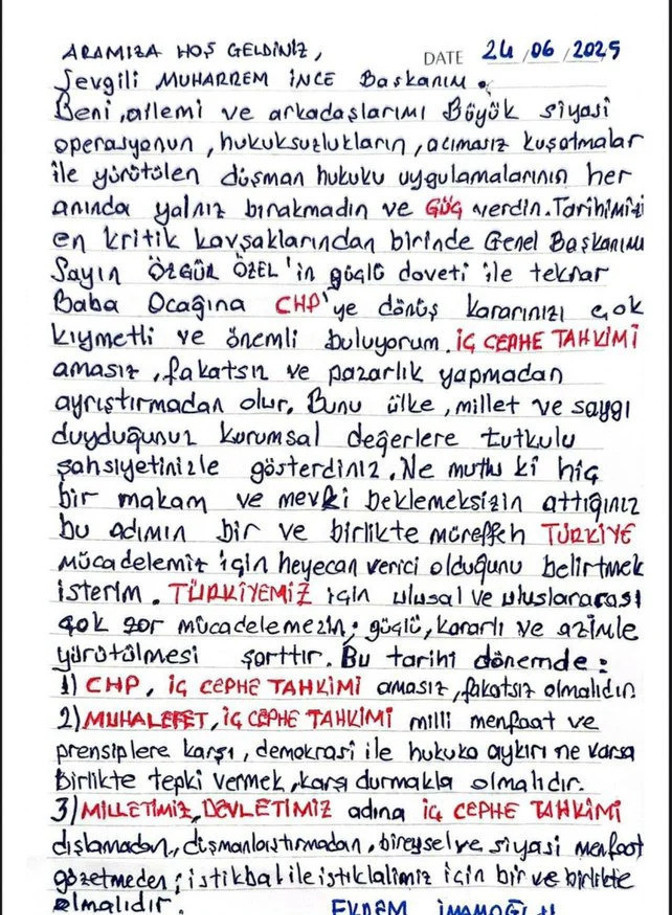 ARAMIZA HOŞ GELDİNİZ, DATE 24/06/2025
Sevgili MUHARREM İNCE Başkanım.
Beni, ailemi ve arkadaşlarımı Büyük siyasi
operasyonun, hukuksuzlukların, acımasız kuşatmalar
ile yürütülen düşman hukuku uygulamalarının her
anında yalnız bırakmadın ve GÜÇ verdin. Tarihimizi
en kritik kavşaklarından birinde Genel Başkanım
Sayın ÖZGÜR ÖZEL'in güçlü daveti ile tekrar
Baba Ocağına CHP'ye dönüş kararınızı çok
kıymetli ve önemli buluyorum. İÇ CEPHE TAHKİMİ
amasız, fakatsız ve pazarlık yapmadan
ayrıştırmadan olur. Bunu ülke, millet ve saygı
duyduğunuz kurumsal değerlere tutkulu
şahsiyetinizle gösterdiniz. Ne mutlu ki hiç
bir makam ve mevki beklemeksizin attığınız
bu adımın bir ve birlikte müreffeh TÜRKİYE
mücadelemiz için heyecan verici olduğunu belirtmek
isterim. TÜRKİYEMİZ için ulusal ve uluslararası
çok zor mücadelemezin; güçlü, kararlı ve azimle
yürütülmesi şarttır. Bu tarihi dönemde:
1) CHP, İÇ CEPHE TAHKİMİ amasız, fakatsız olmalıdır.
2) MUHALEFET, İÇ CEPHE TAHKİMİ milli menfaat ve
prensiplere karşı, demokrasi ile hukuka aykırı ne varsa
Birlikte tepki vermek, karşı durmakla olmalıdır.
3) MİLLETİMİZ, DEVLETİMİZ adına İÇ CEPHE TAHKİMİ
dışlamadan, düşmanlaştırmadan, bireysel ve siyasi menfaat
gözetmeden; istikbal ile istiklalimiz için bir ve birlikte
olmalıdır. EKREM İMAMOĞLU